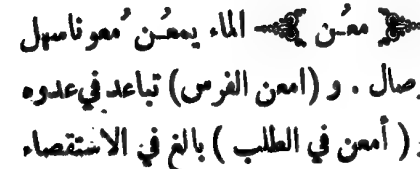 معُـن الماء يمعُـن مُعوناسهل
صال . و (امعن الفرس) تباعد في عدوه
( أمعن في الطلب ) بالغ في الاستقصاء